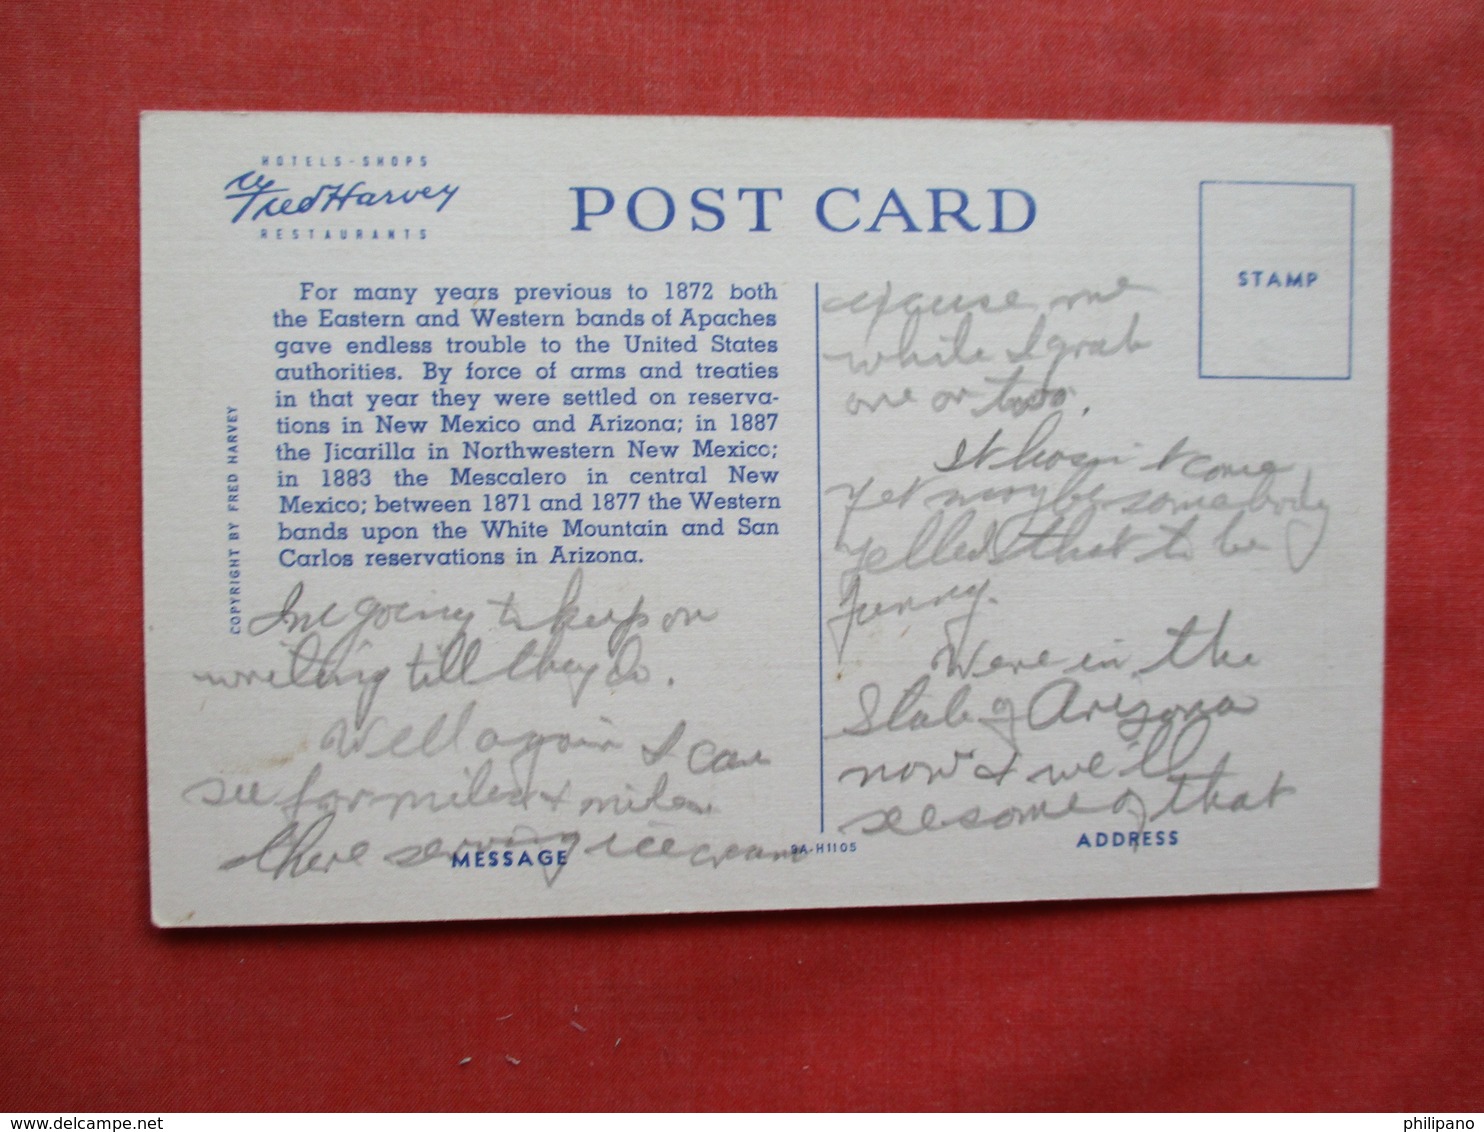 HOTELS - SHOPS
Fred Harvey
RESTAURANTS
POST CARD
STAMP
For many years previous to 1872 both
the Eastern and Western bands of Apaches
gave endless trouble to the United States
authorities. By force of arms and treaties
in that year they were settled on reserva-
tions in New Mexico and Arizona; in 1887
the Jicarilla in Northwestern New Mexico;
in 1883 the Mescalero in central New
Mexico; between 1871 and 1877 the Western
bands upon the White Mountain and San
Carlos reservations in Arizona.
COPYRIGHT BY FRED HARVEY
Im going to keep on
writing till they do.
Well again I can
see for miles & miles
there serving ice cream
MESSAGE
excuse me
while I grab
one or two.
It hasn't come
yet maybe somebody
yelled that to be
funny.
Were in the
State of Arizona
now & we'll
see some of that
9A-H1105
ADDRESS
delcampe.net
philipano